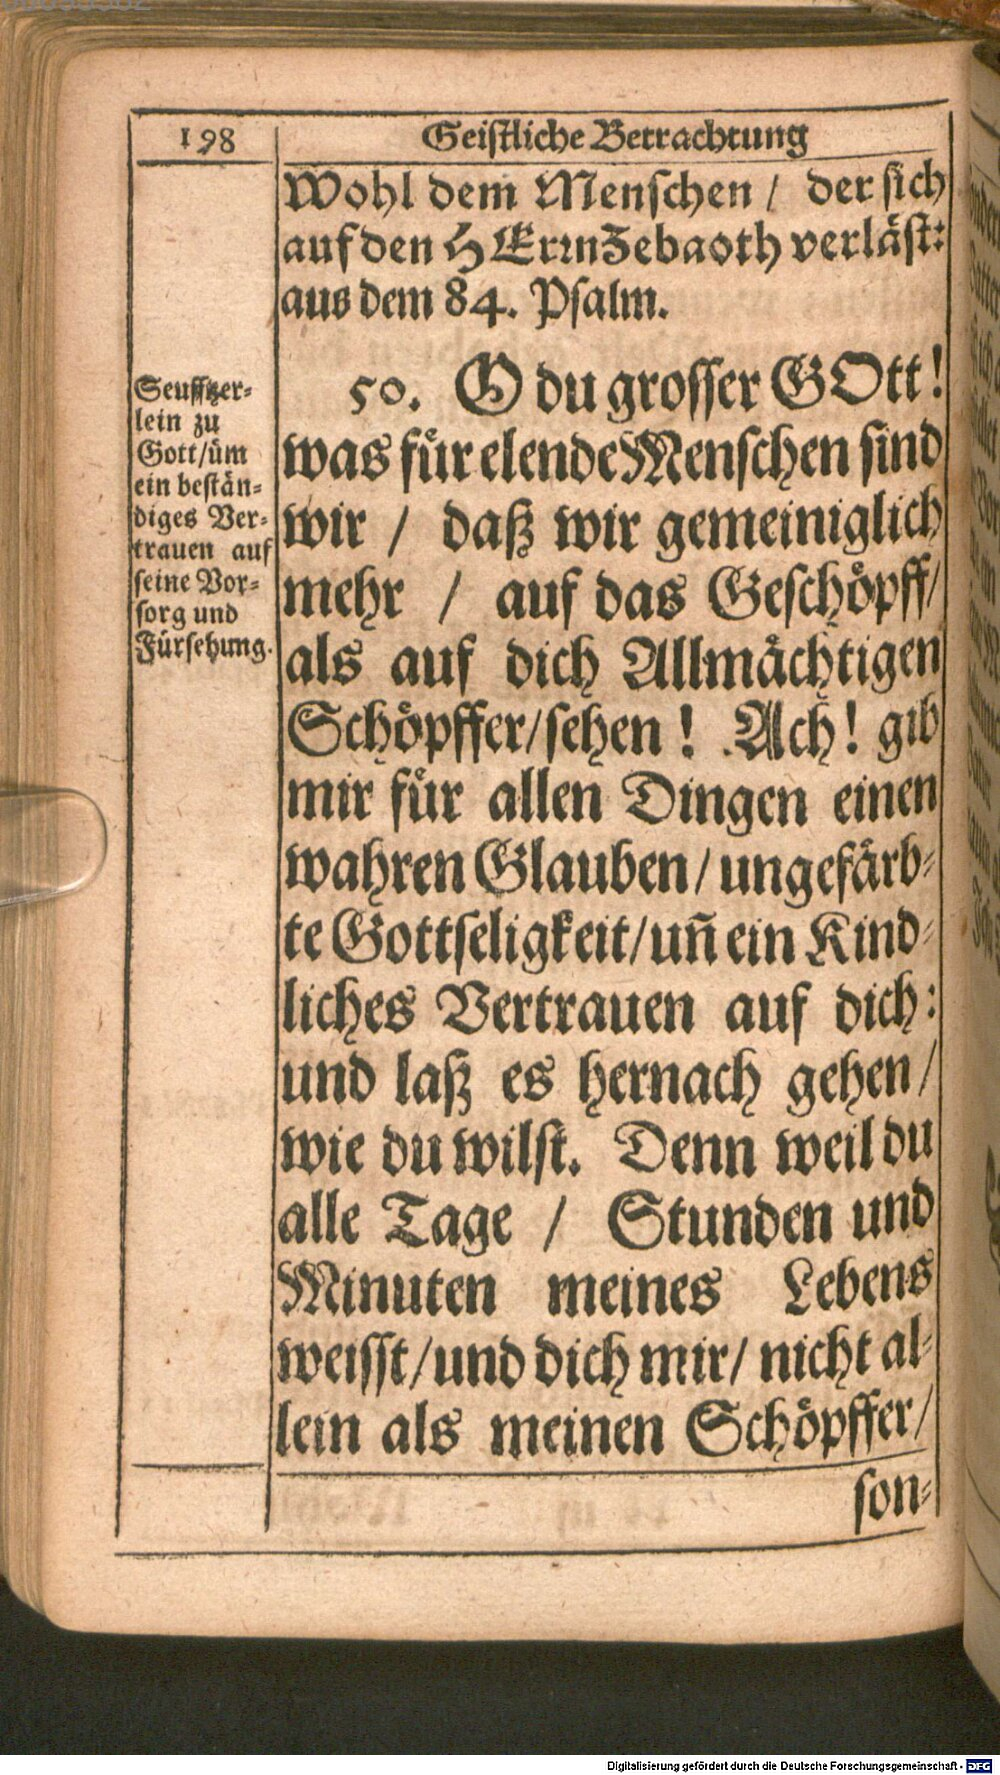 198
Geistliche Betrachtung
Wohl dem Menschen / der sich
auf den HErrn Zebaoth verläst:
aus dem 84. Psalm.
Seufftzer-
lein zu
Gott/üm
ein bestän-
diges Ver-
trauen auf
seine Vor-
sorg und
Fürsehung.
50. O du grosser GOtt!
was fuͤr elende Menschen sind
wir / daß wir gemeiniglich
mehr / auf das Geschoͤpff/
als auf dich Allmaͤchtigen
Schoͤpffer/sehen! Ach! gib
mir fuͤr allen Dingen einen
wahren Glauben/ungefaͤrb-
te Gottseligkeit/uñ ein Kind-
liches Vertrauen auf dich:
und laß es hernach gehen/
wie du wilst. Denn weil du
alle Tage / Stunden und
Minuten meines Lebens
weisst/und dich mir/ nicht al-
lein als meinen Schoͤpffer/
son-
Digitalisierung gefördert durch die Deutsche Forschungsgemeinschaft - DFG